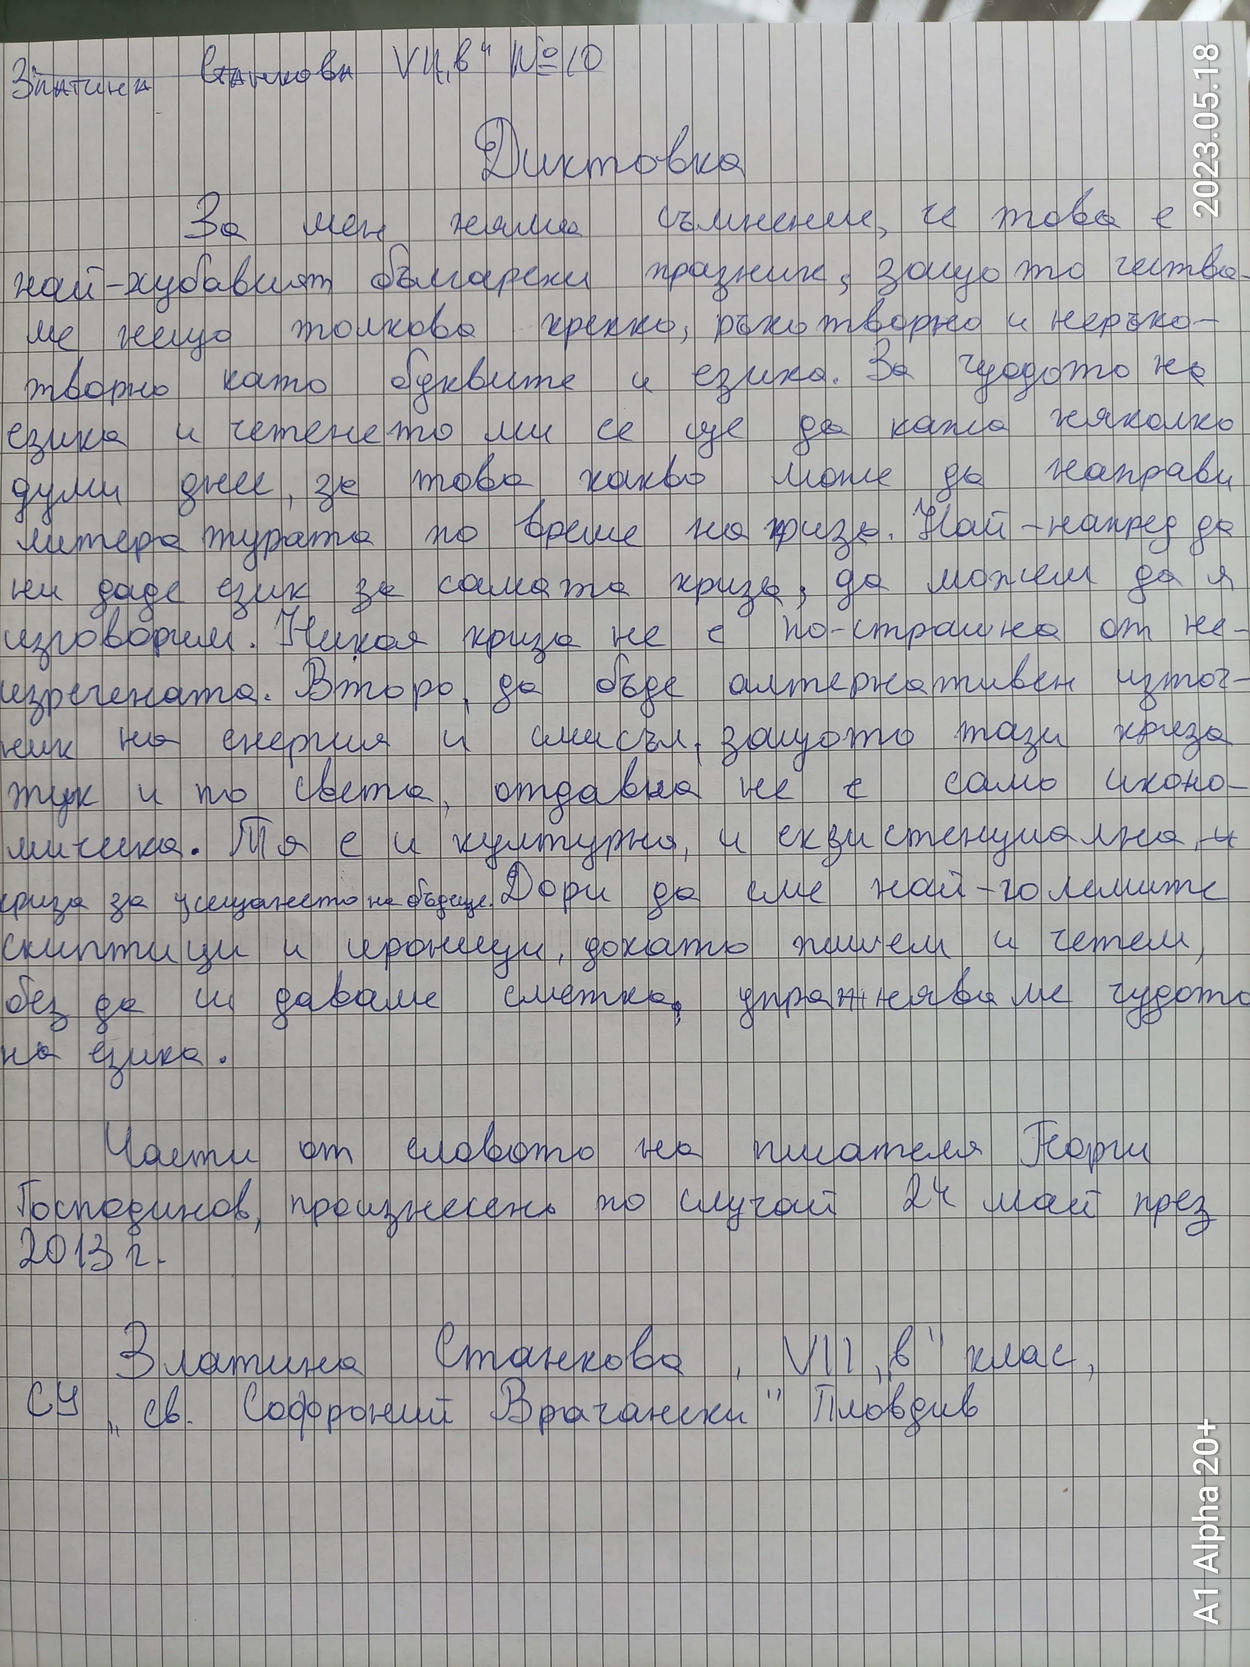 Златина Станкова VII "в" №10
Диктовка
За мен няма съмнение, че това е
най-хубавият български празник, защото чества-
ме нещо толкова крехко, ръкотворно и неръко-
творно като буквите и езика. За чудото на
езика и четенето ми се ще да кажа няколко
думи днес, за това какво може да направи
литературата по време на криза. Най-напред да
ни даде език за самата криза, да можем да я
изговорим. Никоя криза не е по-страшна от не-
изречената. Второ, да бъде алтернативен източ-
ник на енергия и смисъл, защото тази криза
тук и по света, отдавна не е само иконо-
мическа. Тя е и културна, и екзистенциална, и
криза за усещането на бъдеще. Дори да сме най-големите
скиптици и ироници, докато пишем и четем,
без да си даваме сметка, упражняваме чудото
на езика.
Части от словото на писателя Георги
Господинов, произнесено по случай 24 май през
2013 г.
Златина Станкова, VII "в" клас,
СУ "св. Софроний Врачански" Пловдив
2023.05.18
A1 Alpha 20+